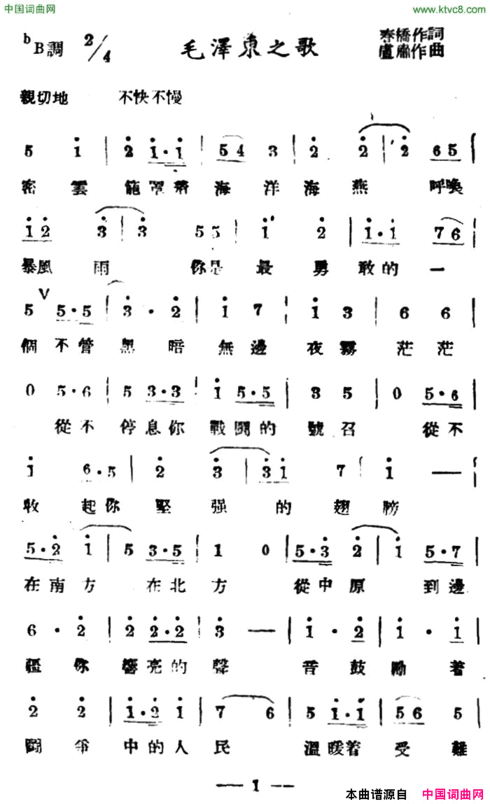 中国词曲网
www.ktvc8.com
ᵇB調 2/4 毛澤東之歌 春橋作詞
盧肅作曲
親切地 不快不慢
5 i | 2 i·i | 54 3 | 2 2 | 2·2 | 2 65 |
密雲籠罩着海洋海燕 呼喚
i2 3 | 3 5·5 | i· 2 | i·i 76 |
暴風雨 你是最勇敢的一
5 5·5 | 3·2 | i 7 | i 3 | 6 6 |
個不管黑暗無邊夜霧茫茫
0 5·6 | 5 3·3 | i 5·5 | 3 5 | 0 5·6 |
從不停息你戰鬪的號召從不
i 6·5 | 2 3 | 3·i | 7 i |
收起你堅强的翅膀
5·2 i | 5 3·5 | 1 0 | 5·3 2 | i 5·7 |
在南方在北方從中原到邊
6·2 | 2 2·2 | 3 — | i·2 | i·i |
疆你響亮的聲音鼓勵着
2 2 | i·2 i | 7 6 | 5 i·i | 56 5 |
鬪爭中的人民溫暖着受難
— 1 —
本曲谱源自 中国词曲网